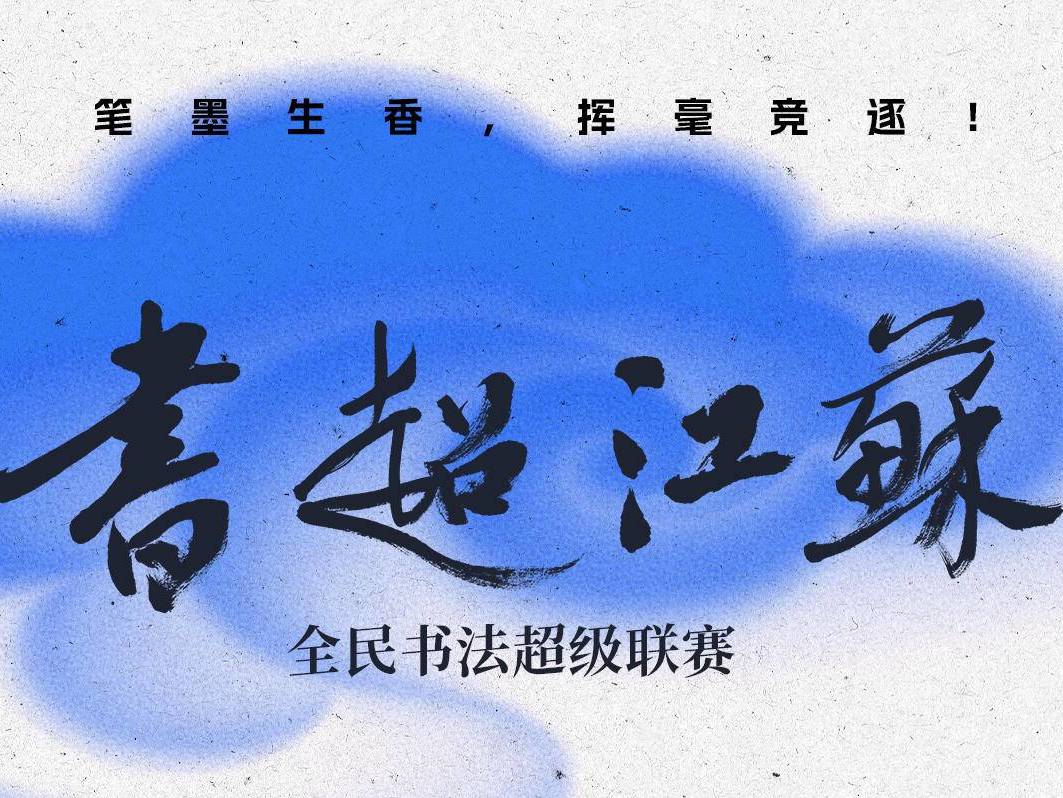 笔墨生香，挥毫竞逐！
書超江蘇
全民书法超级联赛